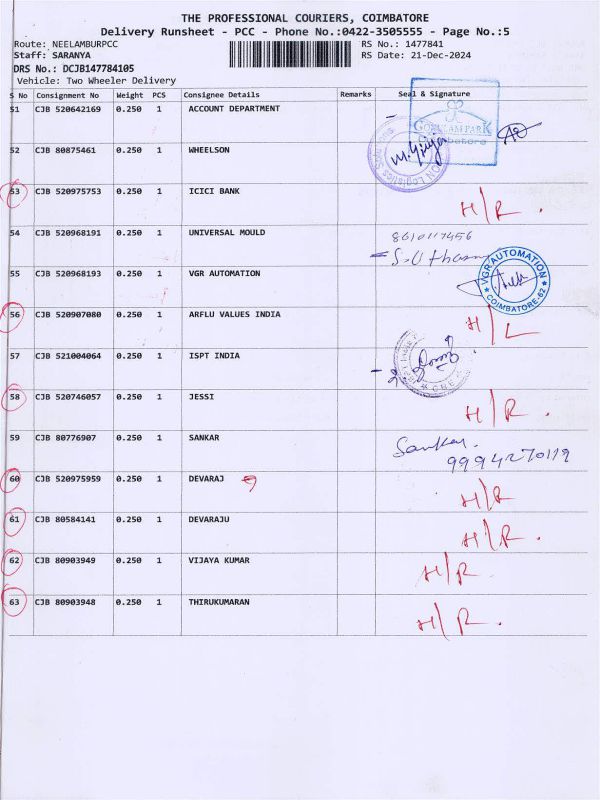 THE PROFESSIONAL COURIERS, COIMBATORE
Delivery Runsheet - PCC - Phone No.:0422-3505555 - Page No.:5
Route: NEELAMBURPCC RS No.: 1477841
Staff: SARANYA RS Date: 21-Dec-2024
DRS No.: DCJB147784105
Vehicle: Two Wheeler Delivery
S No Consignment No Weight PCS Consignee Details Remarks Seal & Signature
51 CJB 520642169 0.250 1 ACCOUNT DEPARTMENT
52 CJB 80875461 0.250 1 WHEELSON
53 CJB 520975753 0.250 1 ICICI BANK H/R.
54 CJB 520968191 0.250 1 UNIVERSAL MOULD
55 CJB 520968193 0.250 1 VGR AUTOMATION
VGR AUTOMATION
COIMBATORE-62
56 CJB 520907080 0.250 1 ARFLU VALUES INDIA H/L
57 CJB 521004064 0.250 1 ISPT INDIA
58 CJB 520746057 0.250 1 JESSI H/R.
59 CJB 80776907 0.250 1 SANKAR Sankar.
9994270119
60 CJB 520975959 0.250 1 DEVARAJ H/R
61 CJB 80584141 0.250 1 DEVARAJU H/R.
62 CJB 80903949 0.250 1 VIJAYA KUMAR H/R.
63 CJB 80903948 0.250 1 THIRUKUMARAN H/R.